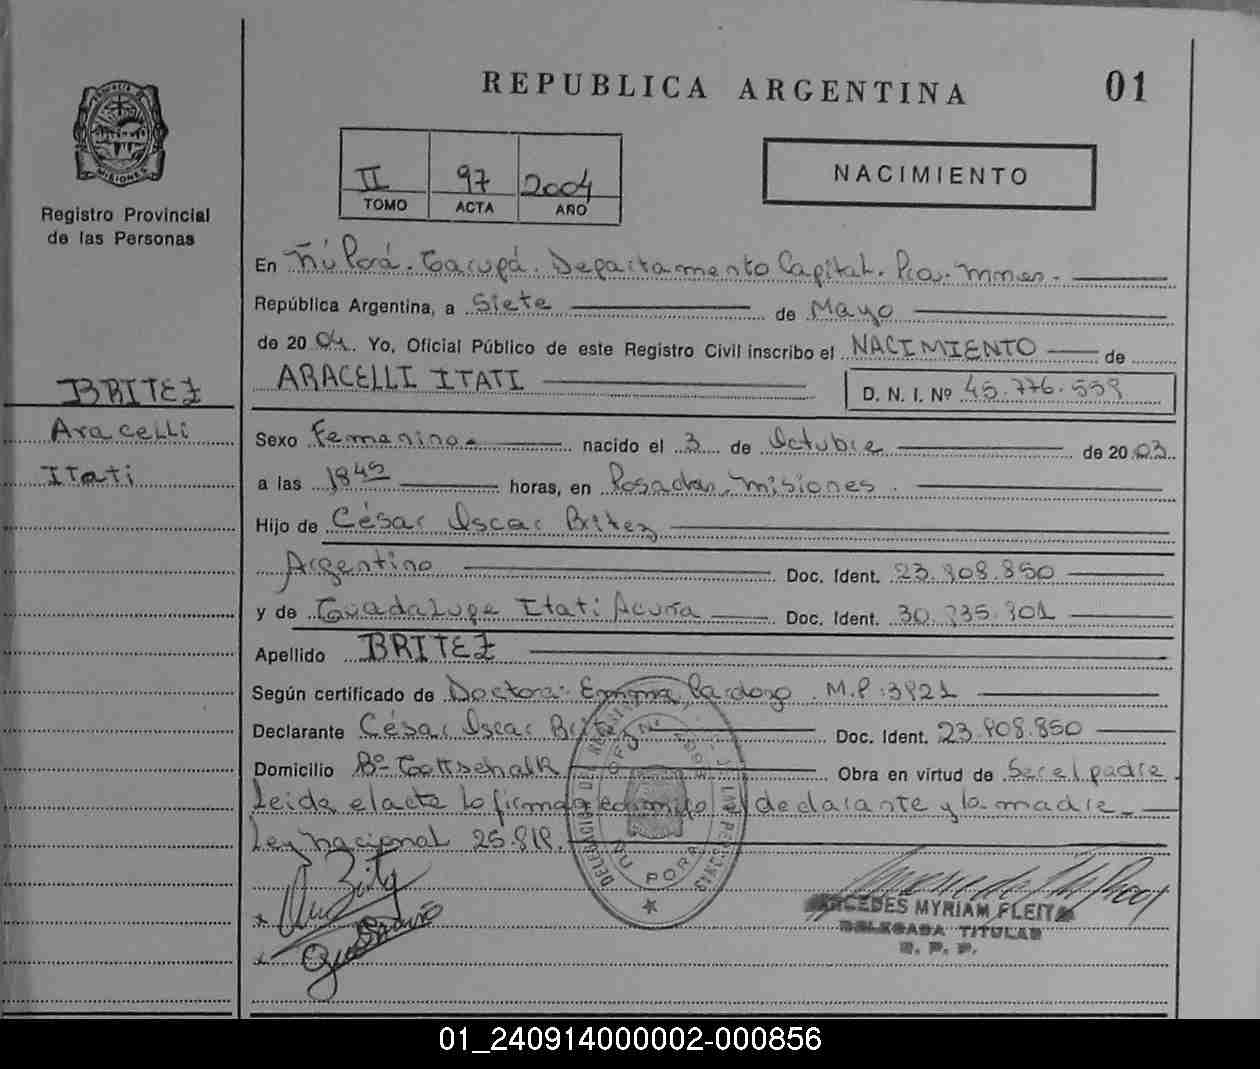 REPUBLICA ARGENTINA
01
Registro Provincial
de las Personas
MISIONES
II 97 2004
TOMO ACTA AÑO
NACIMIENTO
BRITEZ
Aracelli
Itati
En Ñú Porá. Garupá. Departamento Capital. Pcia. Mnes.
República Argentina, a Siete de Mayo
de 2004. Yo, Oficial Público de este Registro Civil inscribo el NACIMIENTO de
ARACELLI ITATI D. N. I. Nº 45.776.559
Sexo Femenino. nacido el 3 de Octubre de 2003.
a las 18⁴⁵ horas, en Posadas, Misiones.
Hijo de César Oscar Britez
Argentino Doc. Ident. 23.808.850
y de Guadalupe Itati Acuña Doc. Ident. 30.835.801
Apellido BRITEZ
Según certificado de Doctora: Emma Pardozo M.P: 3821
Declarante César Oscar Britez Doc. Ident. 23.808.850
Domicilio Bº Gottschalk Obra en virtud de Ser el padre
Leida el acta lo firman conmigo el declarante y la madre
Ley nacional 25.819.
ÑU PORA
MERCEDES MYRIAM FLEITA
DELEGADA TITULAR
R. P. P.
01_240914000002-000856